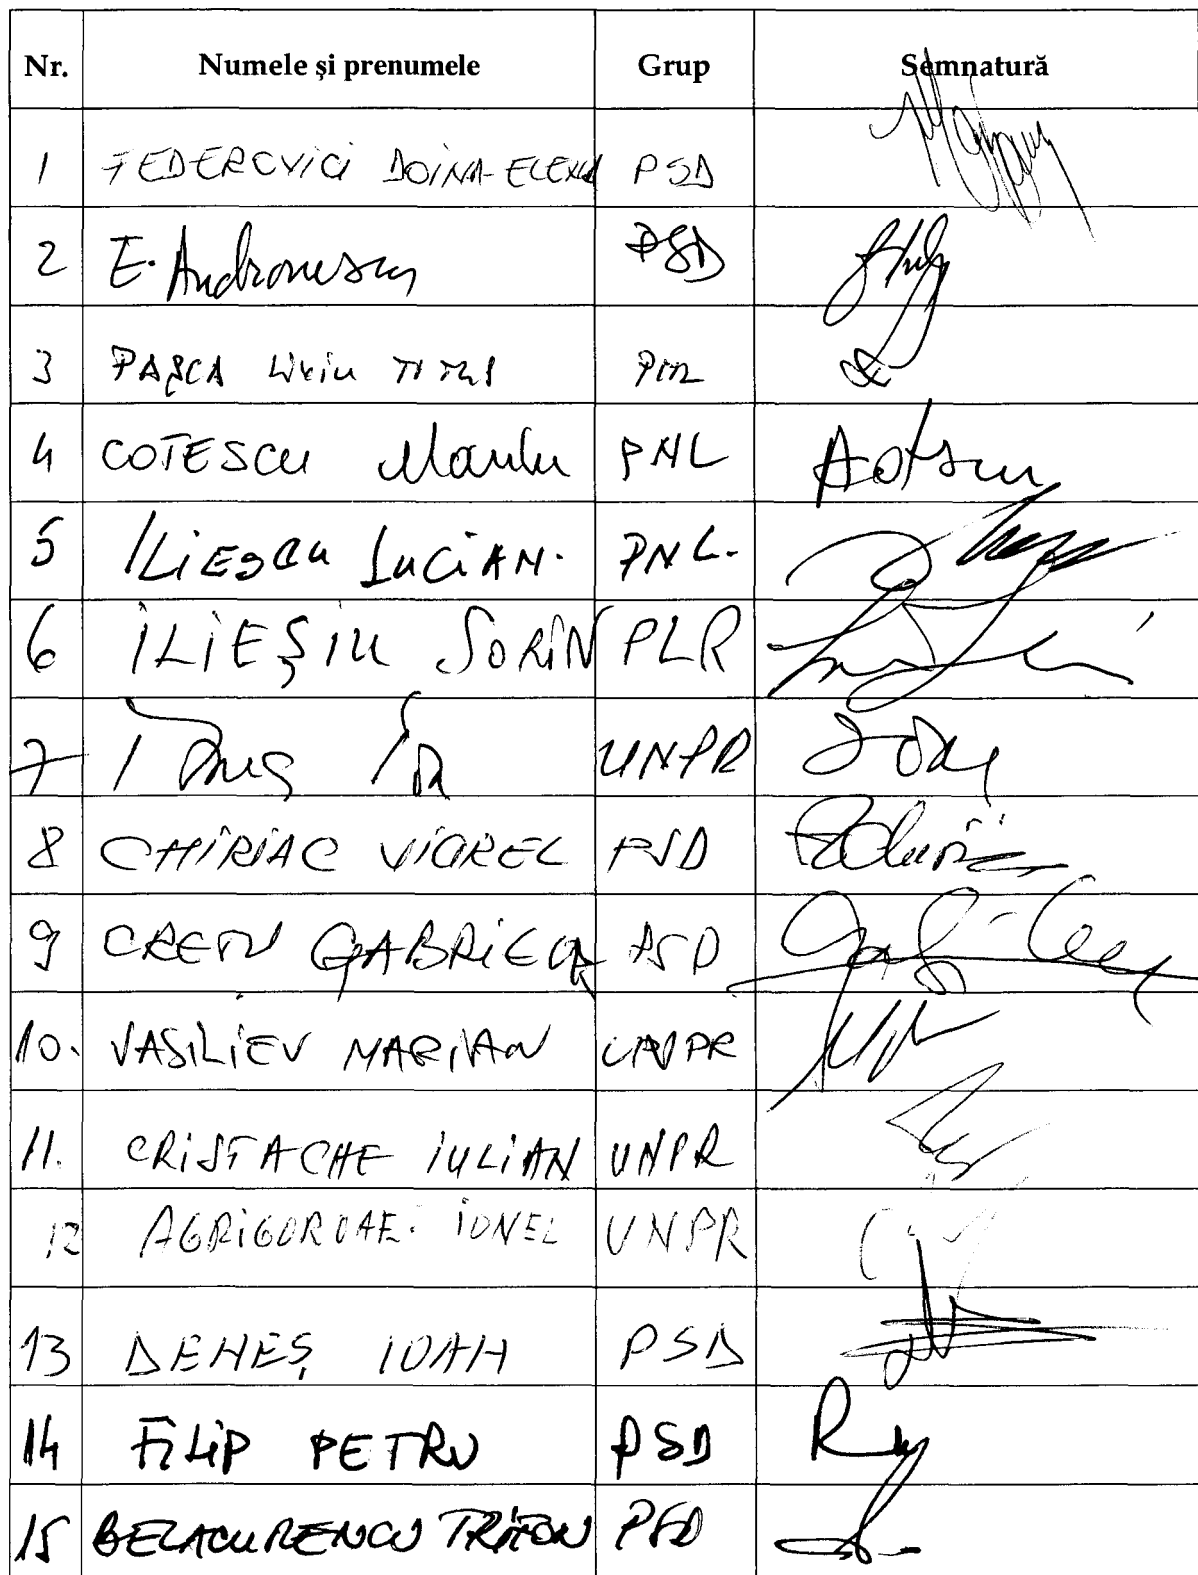 Nr. Numele și prenumele Grup Semnatură
1 FEDEROVICI DOINA-ELENA PSD
2 E. Andronescu PSD
3 PAȘCA Liviu TITUS
4 COTESCU PNL
5 ILIESCU LUCIAN. PNL.
6 ILIEȘIU SORIN PLR
7 UNPR
8 CHIRIAC VIOREL PSD
9 CREȚU GABRIELA PSD
10. VASILIEV MARIAN UNPR
11. CRISTACHE IULIAN UNPR
12 AGRIGOROAEI IONEL UNPR
13 DENEȘ IOAN PSD
14 FILIP PETRU PSD
15 BELACURENCU TRIFON PSD